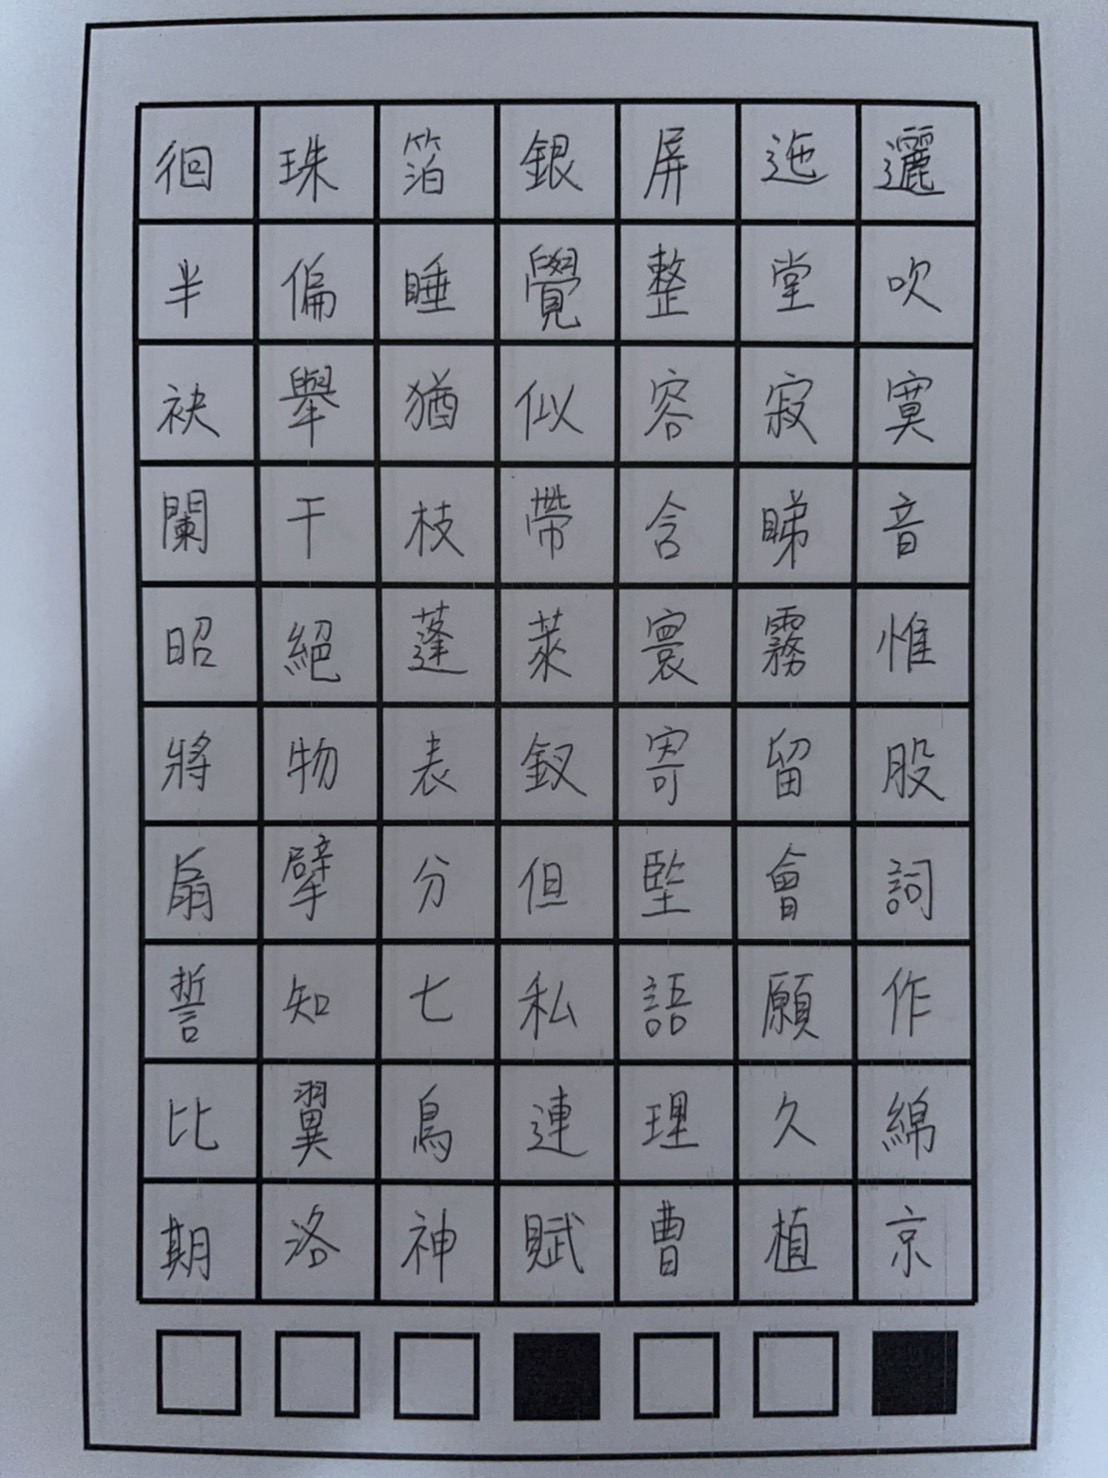 徊珠箔銀屏迤邐
半偏睡覺整堂吹
袂舉猶似容寂寞
闌干枝帶含睇音
昭絕蓬萊寰霧惟
將物表釵寄留股
扇擘分但堅會詞
誓知七私語願作
比翼鳥連理久綿
期洛神賦曹植京